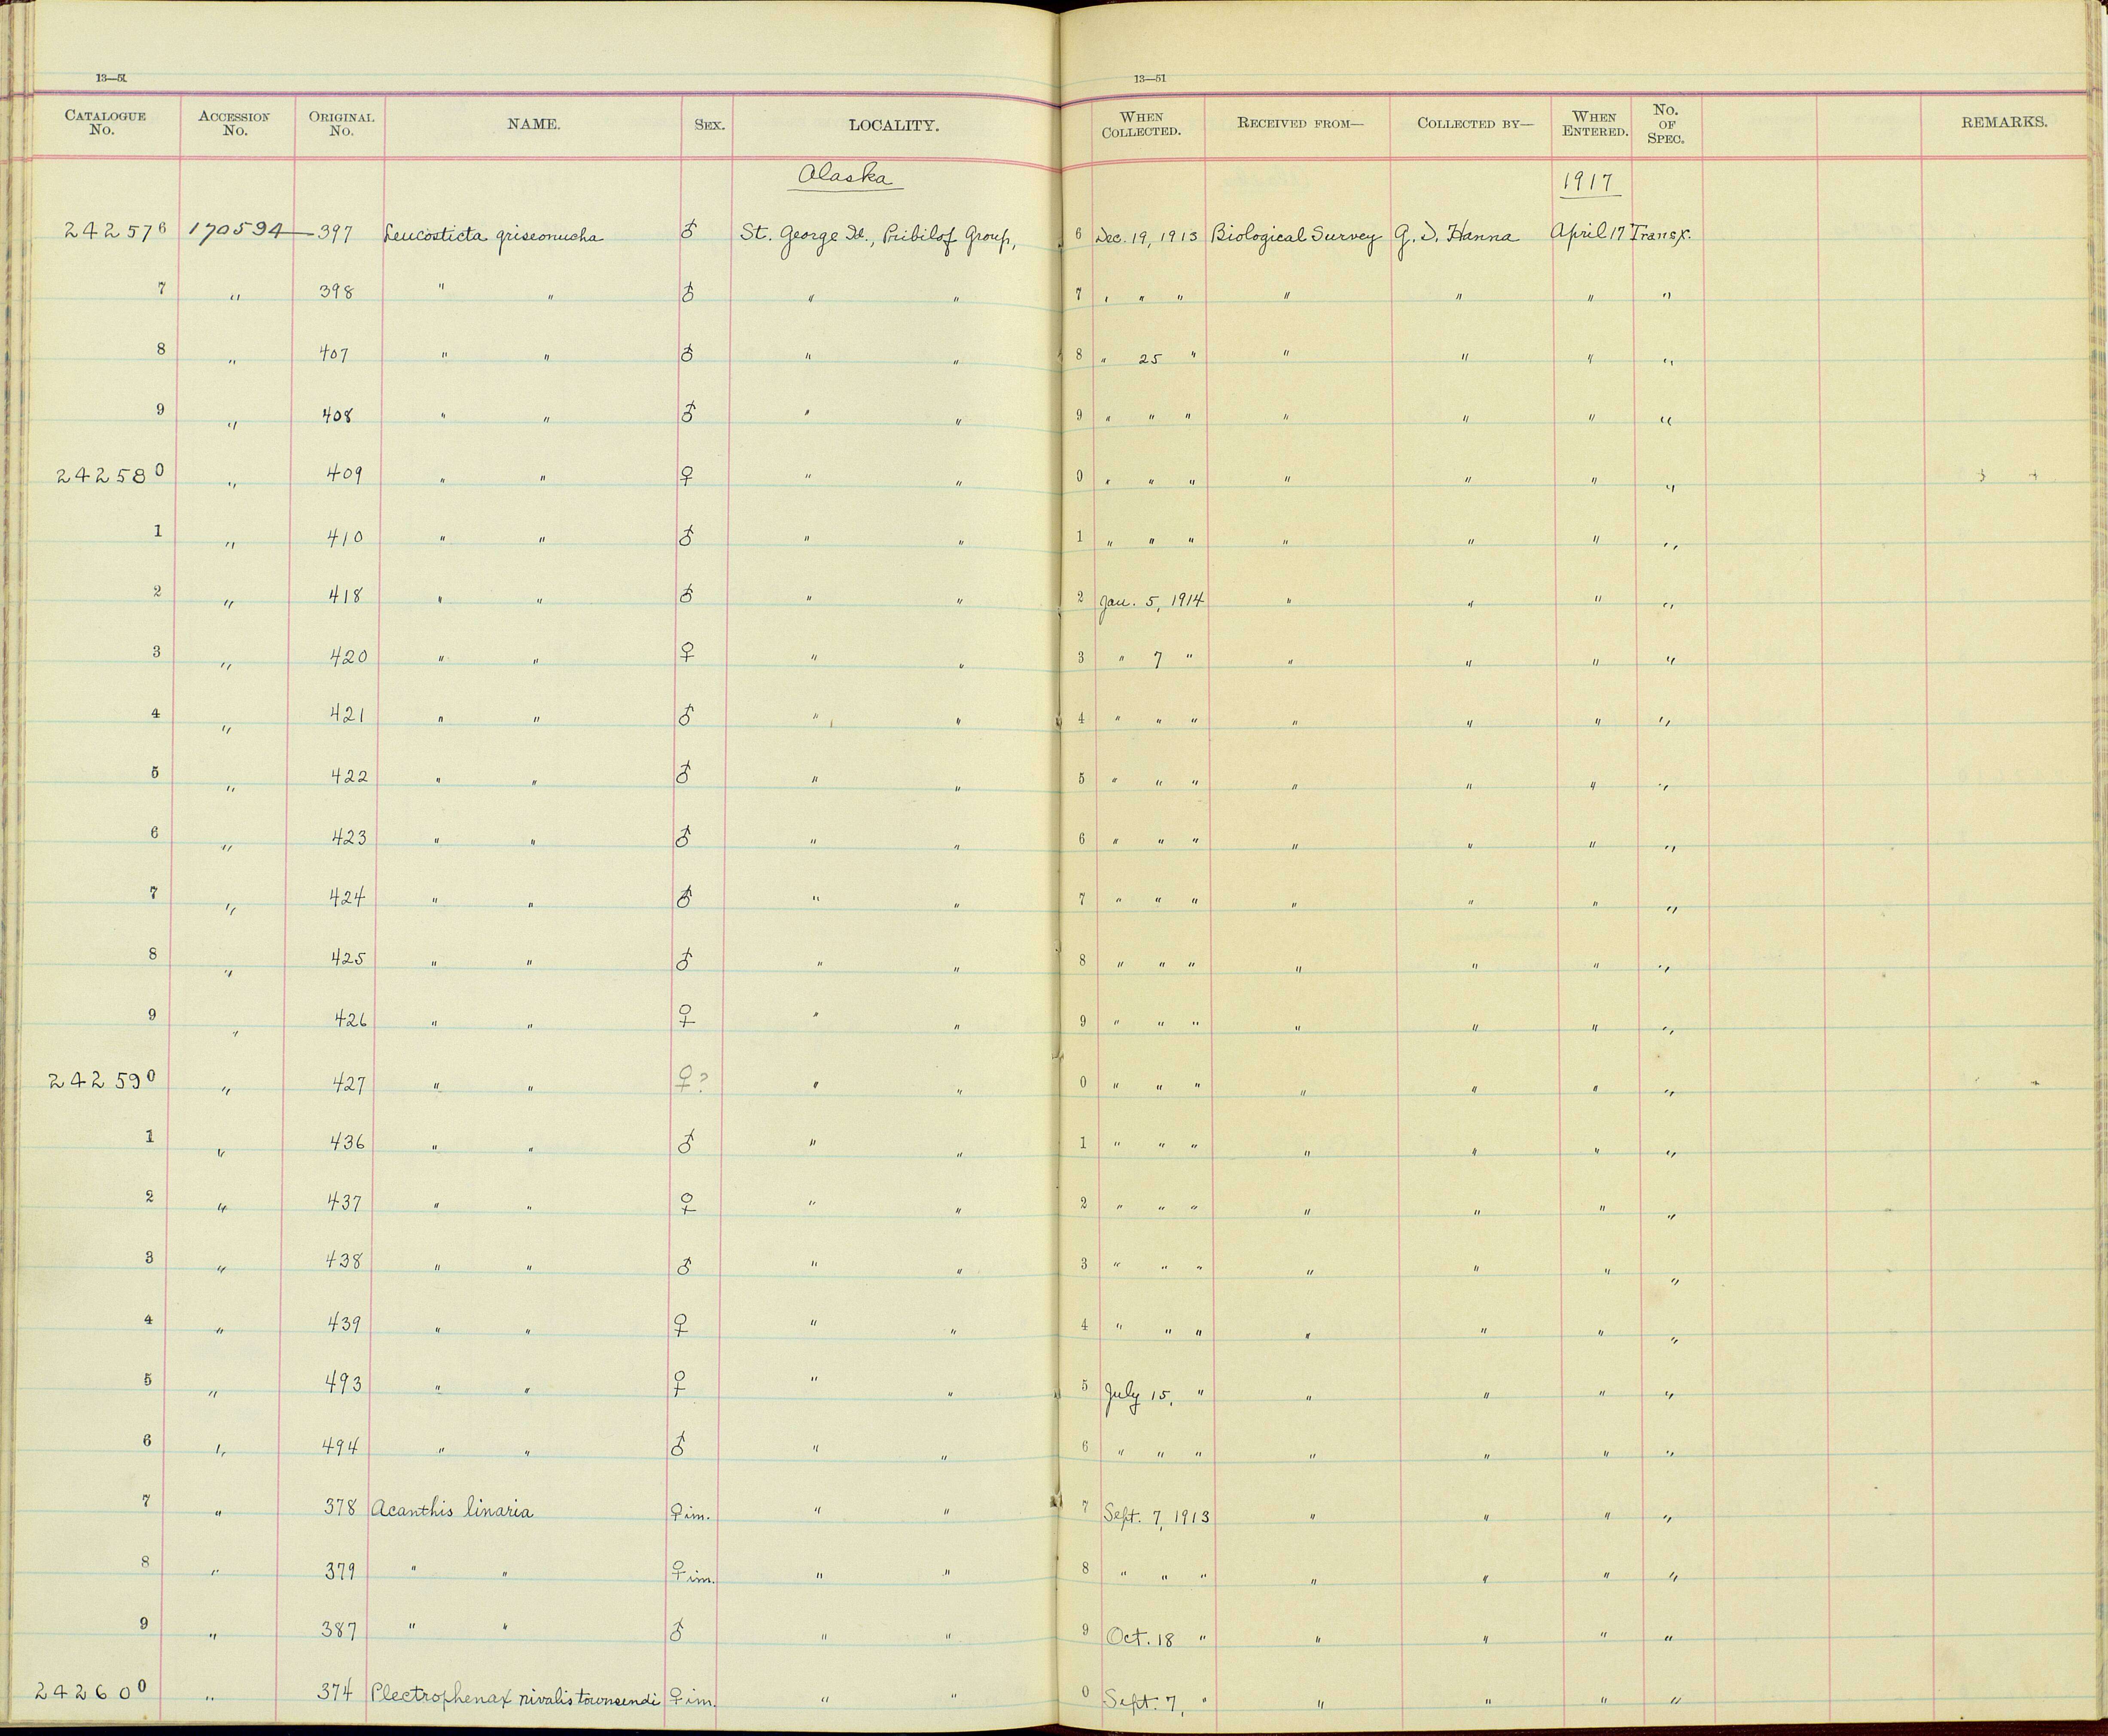 13—51 13—51
CATALOGUE No. ACCESSION No. ORIGINAL No. NAME. SEX. LOCALITY. WHEN COLLECTED. RECEIVED FROM— COLLECTED BY— WHEN ENTERED. No. OF SPEC. REMARKS.
Alaska 1917
242576 170594 — 397 Leucosticta griseonucha ♂ St. George Id., Pribilof Group, 6 Dec. 19, 1913 Biological Survey G. D. Hanna April 17 Transf.
7 " 398 " " ♂ " " 7 " " " " " " "
8 " 407 " " ♂ " " 8 " 25 " " " " "
9 " 408 " " ♂ " " 9 " " " " " " "
242580 " 409 " " ♀ " " 0 " " " " " " "
1 " 410 " " ♂ " " 1 " " " " " " "
2 " 418 " " ♂ " " 2 Jan. 5, 1914 " " " "
3 " 420 " " ♀ " " 3 " 7 " " " " "
4 " 421 " " ♂ " " 4 " " " " " " "
5 " 422 " " ♂ " " 5 " " " " " " "
6 " 423 " " ♂ " " 6 " " " " " " "
7 " 424 " " ♂ " " 7 " " " " " " "
8 " 425 " " ♂ " " 8 " " " " " " "
9 " 426 " " ♀ " " 9 " " " " " " "
242590 " 427 " " ♀? " " 0 " " " " " " "
1 " 436 " " ♂ " " 1 " " " " " " "
2 " 437 " " ♀ " " 2 " " " " " " "
3 " 438 " " ♂ " " 3 " " " " " " "
4 " 439 " " ♀ " " 4 " " " " " " "
5 " 493 " " ♀ " " 5 July 15, " " " " "
6 " 494 " " ♂ " " 6 " " " " " " "
7 " 378 Acanthis linaria ♀ im. " " 7 Sept. 7, 1913 " " " "
8 " 379 " " ♀ im. " " 8 " " " " " " "
9 " 387 " " ♂ " " 9 Oct. 18 " " " " "
242600 " 374 Plectrophenax nivalis townsendi ♀ im. " " 0 Sept. 7, " " " " "